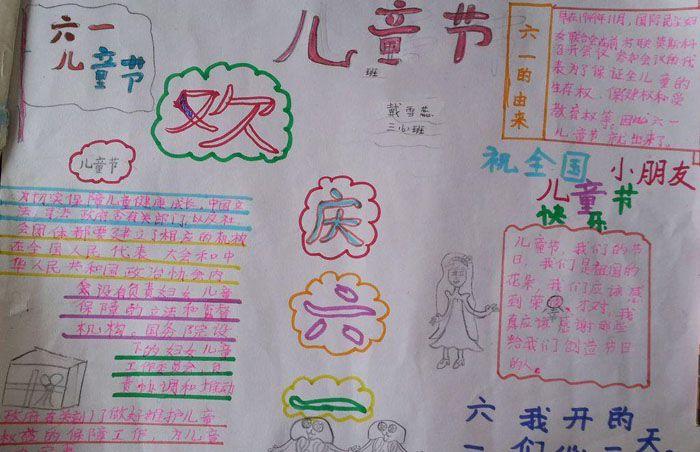 六一
儿童节
儿童节
班
戴雪蕊
三小班
六一的由来
早在1949年11月，国际民主妇
女联合会在莫斯科
召开会议
表为了保证全儿童的
生存权、保健权和受
教育权等，因此六一
儿童节就出来了。
欢
庆
六
一
祝全国小朋友
儿童节
快乐
儿童节
为切实保障儿童健康成长，中国立
法、司法、政府各有关部门，以及社
会团体都要建立了相应的机械
在全国人民代表大会和中
华人民共和国政治协会内
务设有负责妇女儿童
保障的立法和监督
机构，国务院设
下的妇女儿童
工作委员会，负
责协调和推动
政府有关部门做好维护儿童
权益的保障工作，为儿童
儿童节，我们的节
日，我们是祖国的
花朵，我们应该感
到荣 才对，我
真应该感谢那些
给我们创造节日
的人。
六我开的
一们心一天